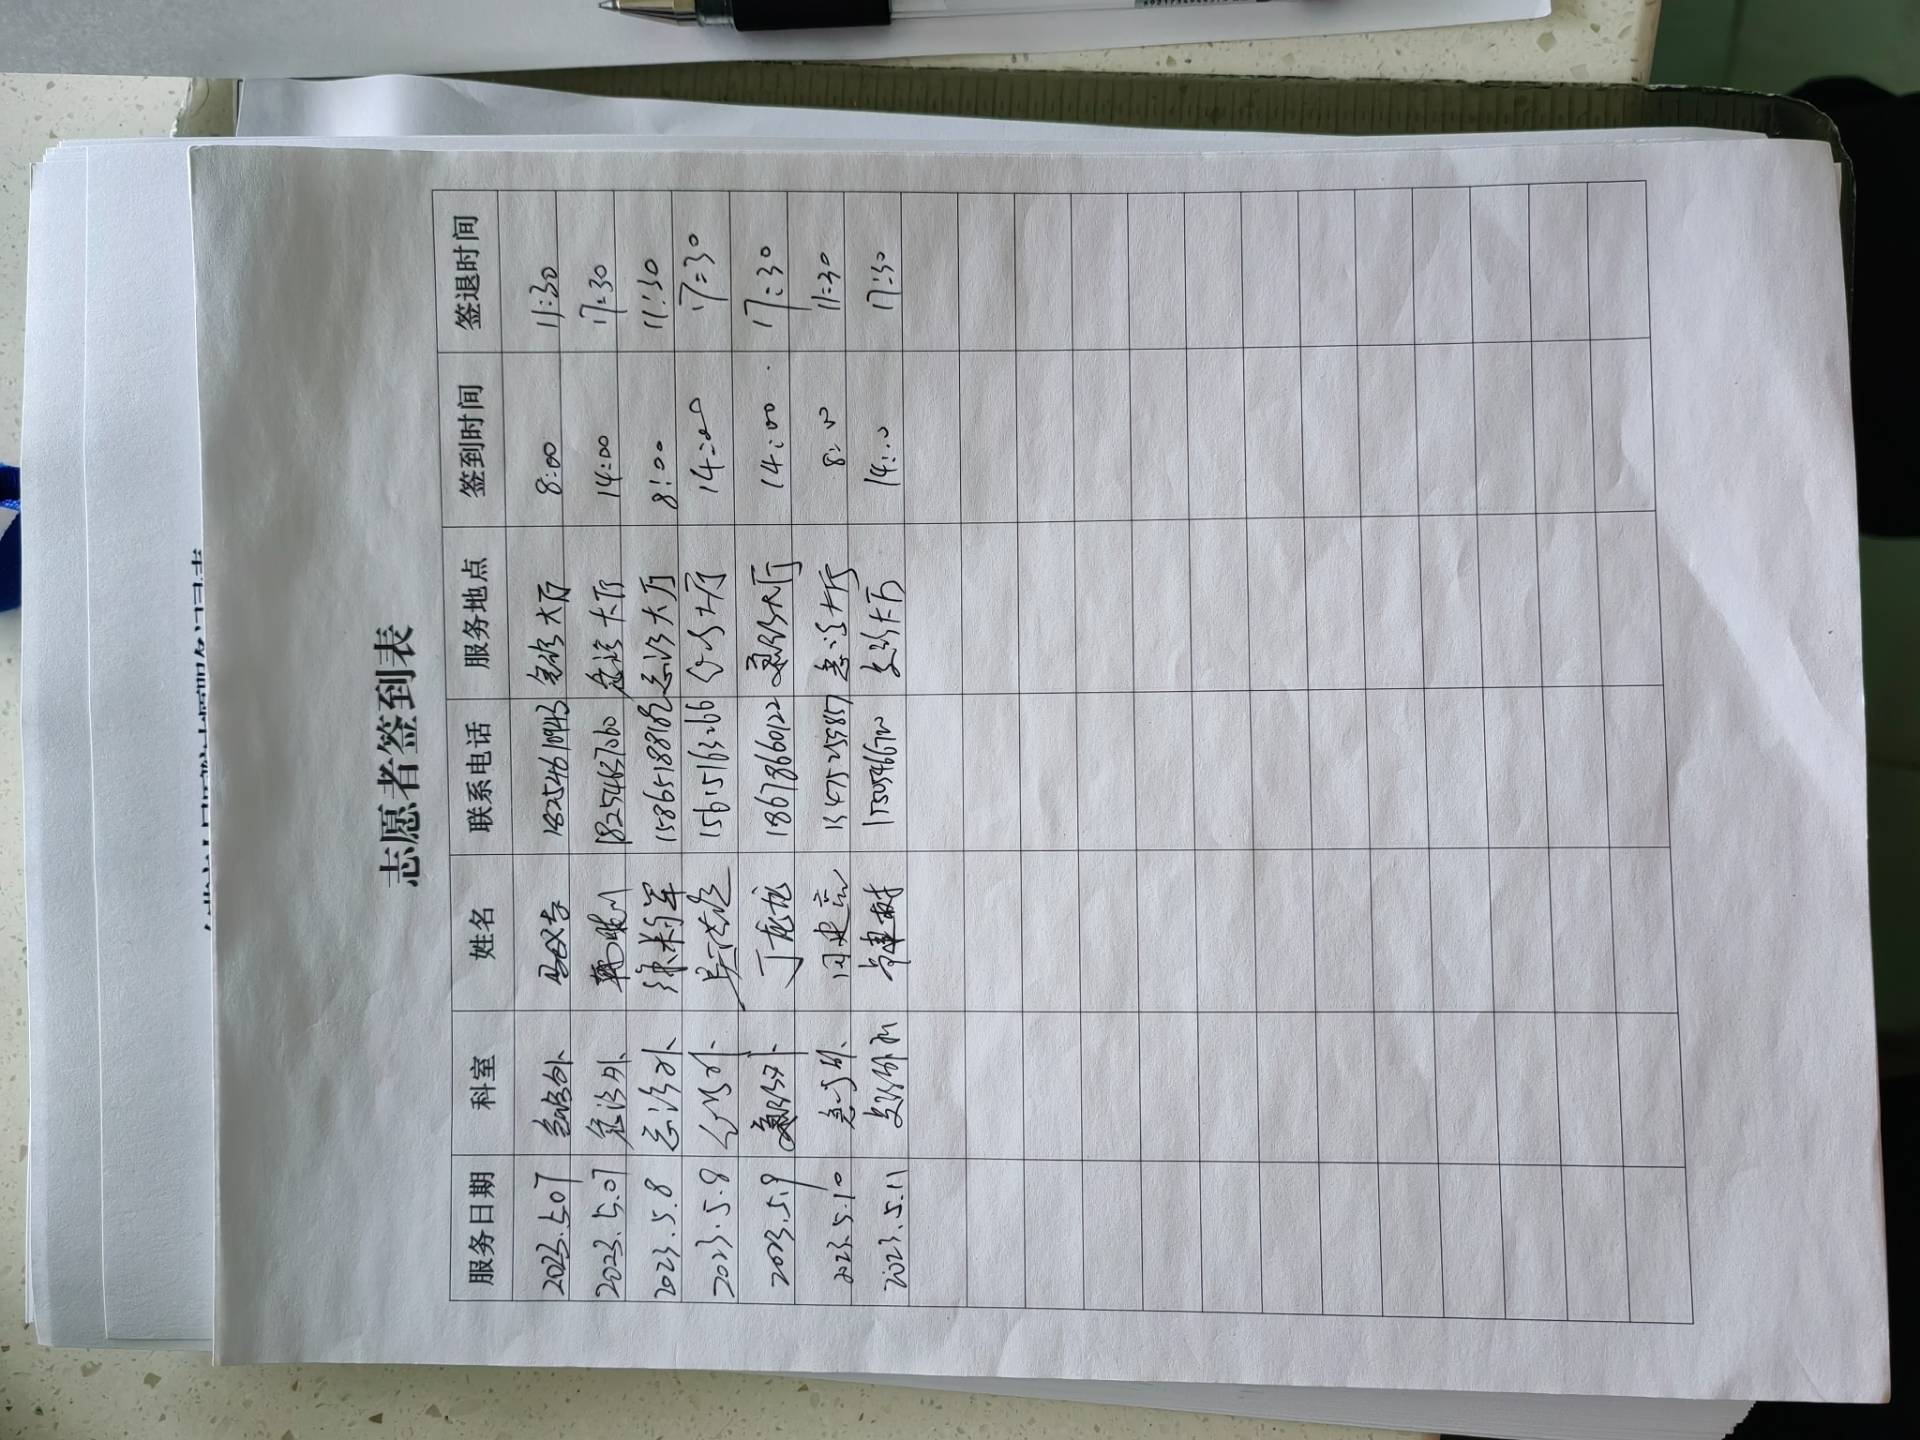 志愿者签到表
服务日期 科室 姓名 联系电话 服务地点 签到时间 签退时间
2023.5.07 急诊外 18254610943 急诊大厅 8:00 11:30
2023.5.07 急诊外 18254637060 急诊大厅 14:00 17:30
2023.5.8 急诊外 徐米军 15865188189 急诊大厅 8:00 11:30
2023.5.8 急诊外 15615163266 急诊大厅 14:00 17:30
2023.5.9 急诊外 丁龙龙 18678660122 急诊大厅 14:00 17:30
2023.5.10 急诊外 闫建言 13475255857 急诊大厅 8:00 11:30
2023.5.11 急诊外科 建树 急诊大厅 14:00 17:30